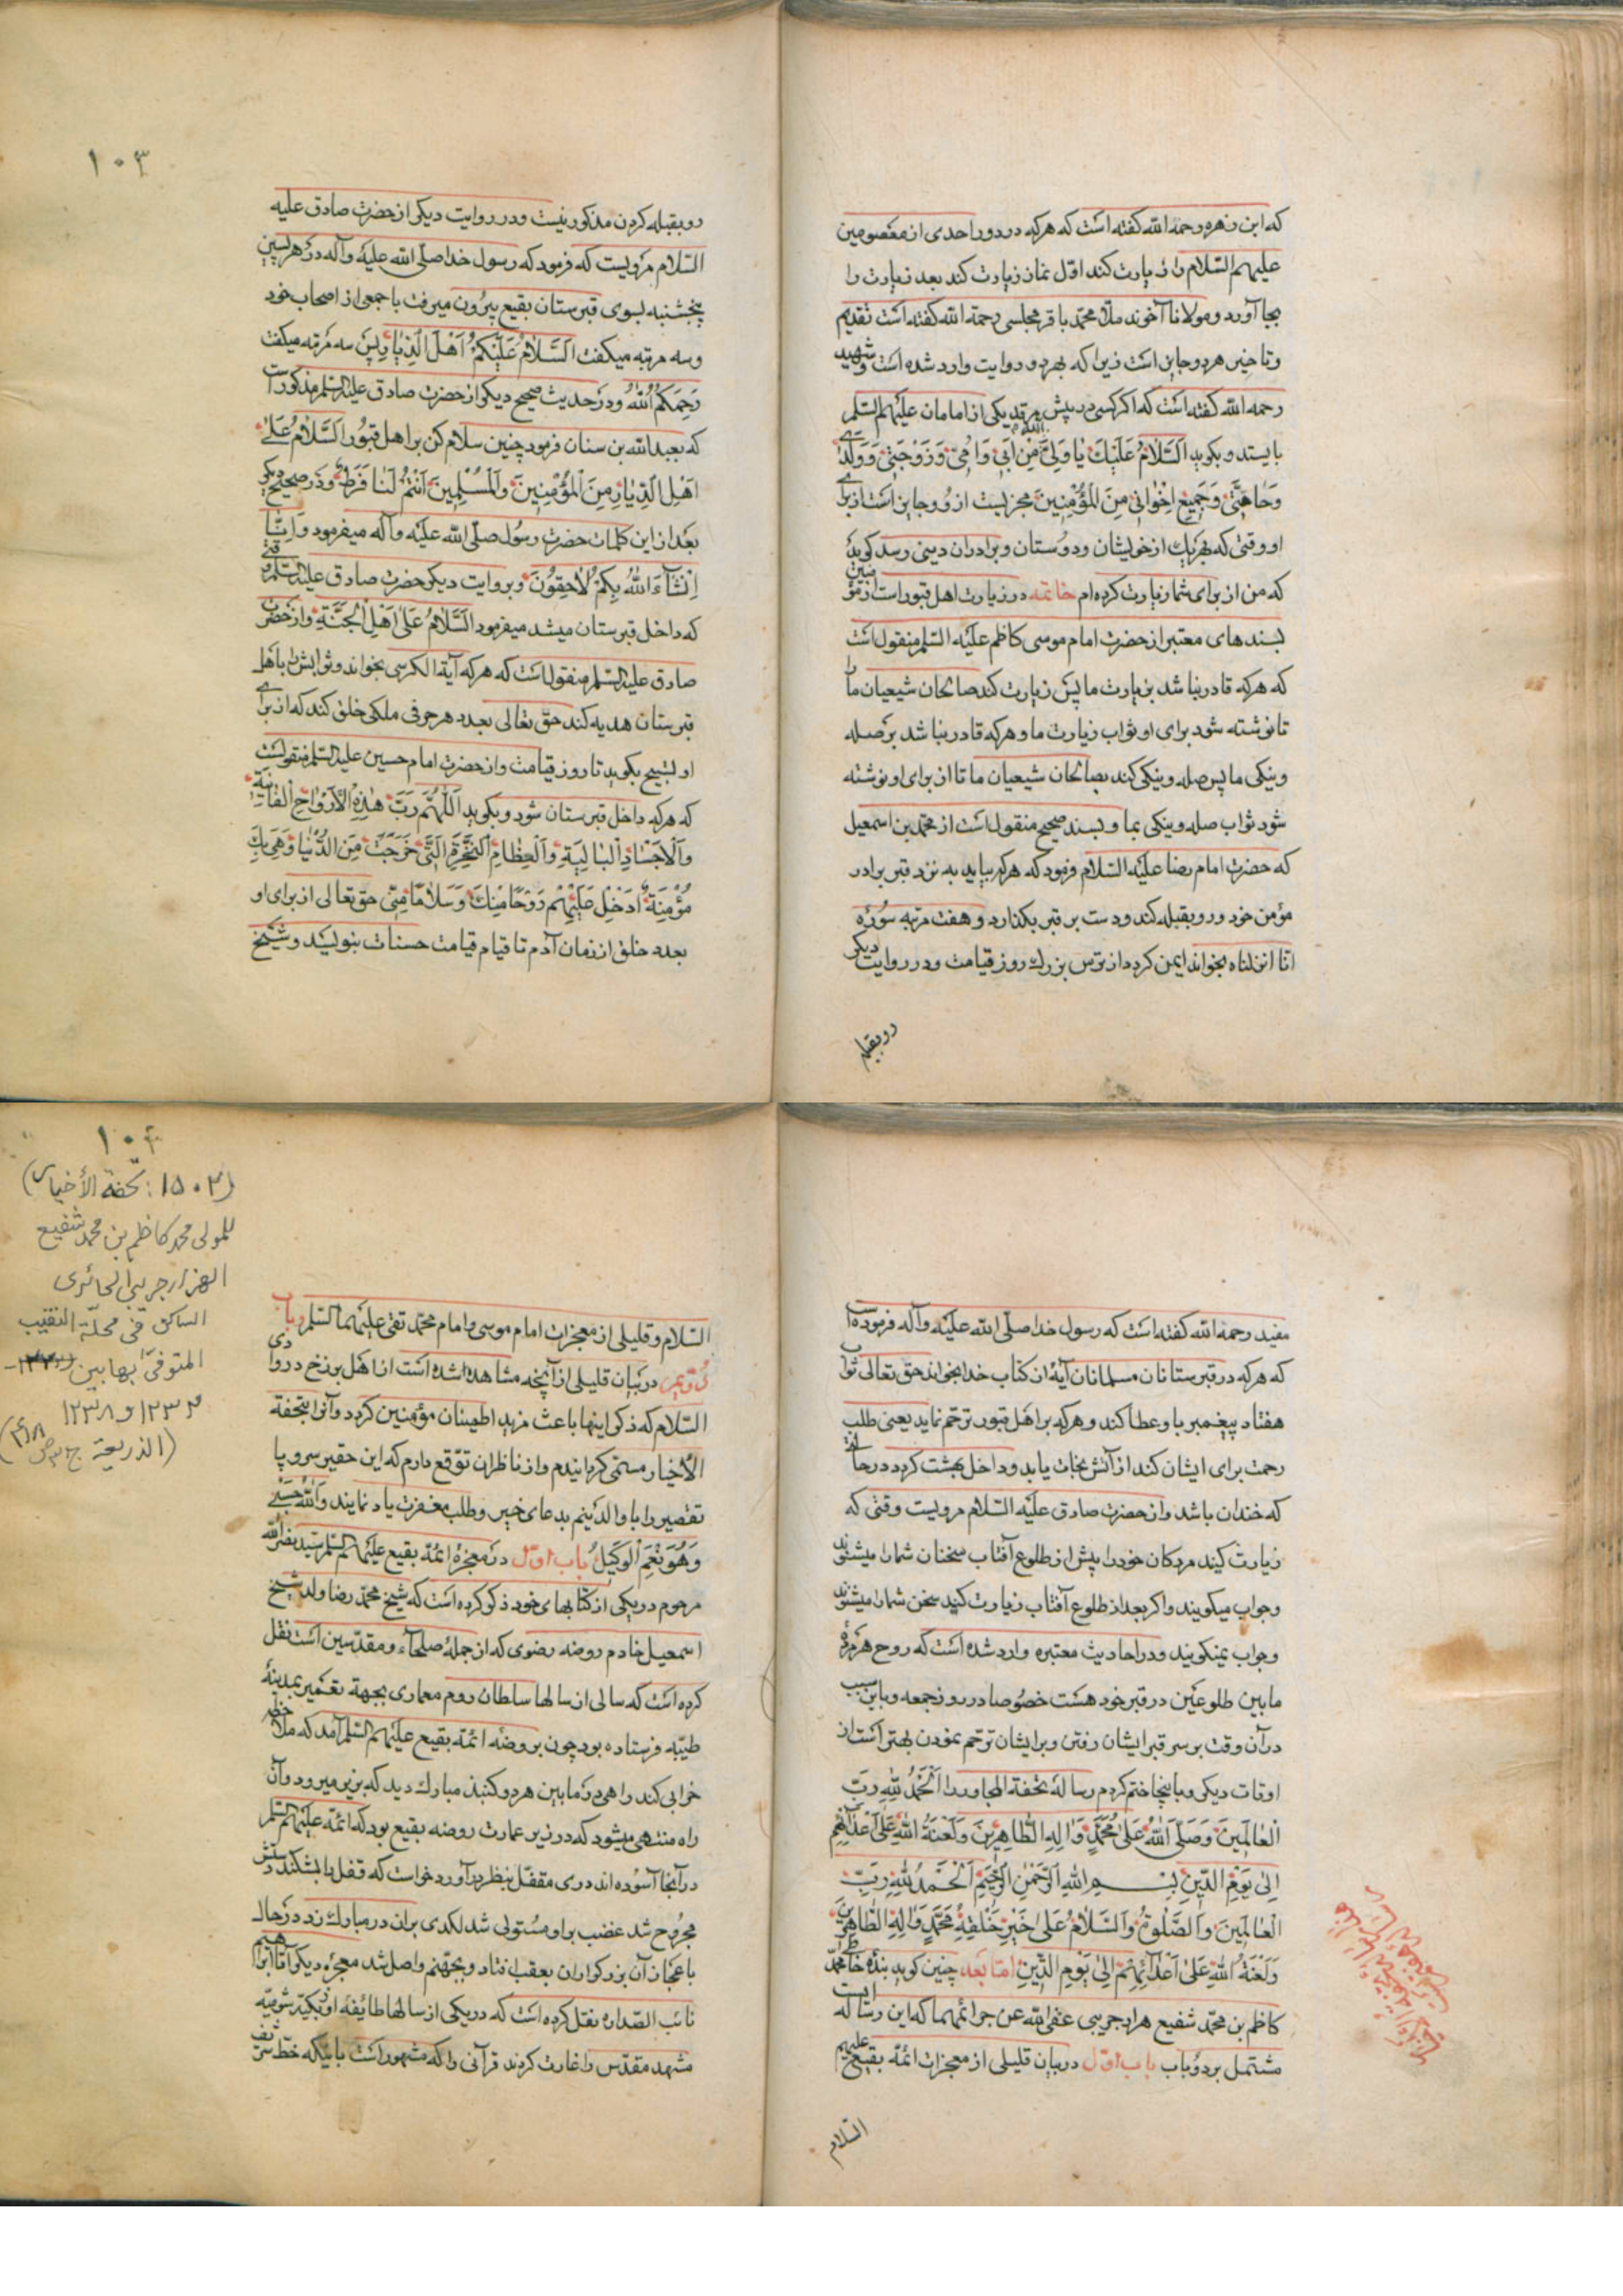 که ابن زهره رحمه الله گفته است که هرکه در دور احدی از معصومین
علیهم السّلام را زیارت کند اوّل نماز زیارت کند بعد زیارت را
بجا آورد و مولانا آخوند ملّا محمّد باقر مجلسی رحمة الله گفته است تقدیم
و تاخیر هر دو جایز است زیرا که بهر دو روایت وارد شده است و شهید
رحمه الله گفته است که اگر کسی در پیش مرقد یکی از امامان علیهم السّلم
بایستد و بگوید اَلسَّلامُ عَلَیْكَ یا وَلِیَّ مِنْ اَبی وَ اُمّی وَ زَوْجَتی وَ وَلَدی
وَ حامَّتی وَ جَمیعِ اِخْوانی مِنَ الْمُؤْمِنینَ مجزیست از او و جایز است از برای
او وقتی که بهریك از خویشان و دوستان و برادران دینی رسد کوید
که من از برای شما زیارت کرده‌ام خاتمه در زیارت اهل قبور است از مؤمنین
بسندهای معتبر از حضرت امام موسی کاظم علیه السّلم منقول است
که هرکه قادر نباشد بزیارت ما پس زیارت کند صالحان شیعیان ما را
تا نوشته شود برای او ثواب زیارت ما و هرکه قادر نباشد بر صله
و نیکی ما پس صله و نیکی کند بصالحان شیعیان ما تا از برای او نوشته
شود ثواب صله و نیکی بما و بسند صحیح منقول است از محمّد بن اسمعیل
که حضرت امام رضا علیه السّلام فرمود که هرکه بیاید به نزد قبر برادر
مؤمن خود و رو بقبله کند و دست بر قبر بگذارد و هفت مرتبه سوره
انّا انزلناه بخواند ایمن کردد از ترس بزرك روز قیامت و در روایت دیکر
رو بقبله
۱۰۳
رو بقبله کردن مذکور نیست و در روایت دیکر از حضرت صادق علیه
السّلام مرویست که فرمود که رسول خدا صلّی الله علیه و آله در هر پسین
پنجشنبه بسوی قبرستان بقیع بیرون میرفت با جمعی از اصحاب خود
و سه مرتبه میکفت اَلسَّلامُ عَلَیْکُمْ اَهْلَ الدِّیارِ پس سه مرتبه میکفت
رَحِمَکُمُ اللهُ و در حدیث صحیح دیکر از حضرت صادق علیه السّلم مذکور است
که بعبدالله بن سنان فرمود چنین سلام کن بر اهل قبور اَلسَّلامُ عَلی
اَهْلِ الدِّیارِ مِنَ الْمُؤْمِنینَ وَ الْمُسْلِمینَ اَنْتُمْ لَنا فَرَطٌ و در صحیح دیکر
بعد از این کلمات حضرت رسول صلّی الله علیه و آله میفرمود وَ اِنّا
اِنْشآءَ اللهُ بِکُمْ لاحِقُونَ و بروایت دیکر حضرت صادق علیه السّلم وقتی
که داخل قبرستان میشد میفرمود اَلسَّلامُ عَلی اَهْلِ الْجَنَّةِ و از حضرت
صادق علیه السّلم منقول است که هرکه آیة الکرسی بخواند و ثوابش را باهل
قبرستان هدیه کند حق تعالی بعدد هر حرفی ملکی خلق کند که از برای
او تسبیح بکوید تا روز قیامت و از حضرت امام حسین علیه السّلم منقولست
که هرکه داخل قبرستان شود و بکوید اَللّهُمَّ رَبَّ هذِهِ الْاَرْواحِ الْفانِیَةِ
وَ الْاَجْسادِ الْبالِیَةِ وَ الْعِظامِ النَّخِرَةِ الَّتی خَرَجَتْ مِنَ الدُّنْیا وَ هِیَ بِكَ
مُؤْمِنَةٌ اَدْخِلْ عَلَیْهِمْ رَوْحًا مِنْكَ وَ سَلامًا مِنّی حق تعالی از برای او
بعدد خلق از زمان آدم تا قیام قیامت حسنات بنویسد و شیخ
مفید رحمه الله گفته است که رسول خدا صلّی الله علیه و آله فرموده است
که هرکه در قبرستانان مسلمانان آیه‌ای از کتاب خدا بخواند حق تعالی ثواب
هفتاد پیغمبر باو عطا کند و هرکه بر اهل قبور ترحّم نماید یعنی طلب
رحمت برای ایشان کند از آتش نجات یابد و داخل بهشت کردد در حالتی
که خندان باشد و از حضرت صادق علیه السّلام مرویست وقتی که
زیارت کنید مردکان خود را پیش از طلوع آفتاب سخنان شما را میشنوند
و جواب میکویند و اکر بعد از طلوع آفتاب زیارت کنید سخن شما را میشنوند
و جواب نمیکویند و در احادیث معتبره وارد شده است که روح هر مرده
مابین طلوعین در قبر خود هست خصوصا در روز جمعه و باین سبب
در آن وقت بر سر قبر ایشان رفتن و بر ایشان ترحّم نمودن بهتر است از
اوقات دیکر و باینجا ختم کردم رساله تحفة المجاور را اَلْحَمْدُ لِلّهِ رَبِّ
الْعالَمینَ وَ صَلَّی اللهُ عَلی مُحَمَّدٍ وَ الِهِ الطّاهِرینَ وَ لَعْنَةُ اللهِ عَلی اَعْدائِهِمْ
اِلی یَوْمِ الدّینِ بِسْمِ اللهِ الرَّحْمنِ الرَّحیمِ اَلْحَمْدُ لِلّهِ رَبِّ
الْعالَمینَ وَ الصَّلوةُ وَ السَّلامُ عَلی خَیْرِ خَلْقِهِ مُحَمَّدٍ وَ الِهِ الطّاهِرینَ
وَ لَعْنَةُ اللهِ عَلی اَعْدآئِهِمْ اِلی یَوْمِ الدّینِ امّا بعد چنین کوید بنده خاطی محمّد
کاظم بن محمّد شفیع هزارجریبی عفی الله عن جرائمهما که این رساله ایست
مشتمل بر دو باب باب اوّل در بیان قلیلی از معجزات ائمّه بقیع علیهم
السّلام
۱۰۴
(۱۵۰۲: تحفة الأخيار)
للمولی محمد کاظم بن محمد شفیع
الهزارجریبی الحائری
الساکن فی محلّة النقیب
المتوفّی بها بین
۱۲۳۲ و ۱۲۳۸
(الذریعة ج ۳ ص ۴۱۸)
السّلام و قلیلی از معجزات امام موسی و امام محمّد تقی علیهما السّلم و باب
دویّم در بیان قلیلی از آنچه مشاهده شده است از اهل برزخ در وادی
السّلام که ذکر اینها باعث مزید اطمینان مؤمنین کردد و آنرا بتحفة
الأخیار مسمّی کردانیدم و از ناظران توقّع دارم که این حقیر سر و پا
تقصیر را با والدینم بدعای خیر و طلب مغفرت یاد نمایند وَ اللهُ حَسْبی
وَ هُوَ نِعْمَ الْوَکیلُ باب اوّل در معجزه ائمّه بقیع علیهم السّلم سیّد نصرالله
مرحوم در یکی از کتابهای خود ذکر کرده است که شیخ محمّد رضا ولد شیخ
اسمعیل خادم روضه رضوی که از جمله صلحاء و مقدّسین است نقل
کرده است که سالی از سالها سلطان روم معماری بجهة تعمیر بمدینه
طیّبه فرستاده بود چون بروضه ائمّه بقیع علیهم السّلم آمد که ملاحظه
خرابی کند راهی در مابین هر دو کنبد مبارك دید که بزیر میرود و آن
راه منتهی میشود که در زیر عمارت روضه بقیع بود که ائمّه علیهم السّلم
در آنجا آسوده‌اند دری مقفّل بنظر درآورد خواست که قفل را بشکند دستش
مجروح شد غضب بر او مستولی شد لکدی بران در مبارك زد در حال
باعجاز آن بزرکواران بعقب افتاد و بجهنّم واصل شد معجزه دیکر آقا ابراهیم
نائب الصّداره نقل کرده است که در یکی از سالها طائفه اوزبکیّه شومیّه
مشهد مقدّس را غارت کردند قرآنی را که مشهور است باینکه خطّ شریف